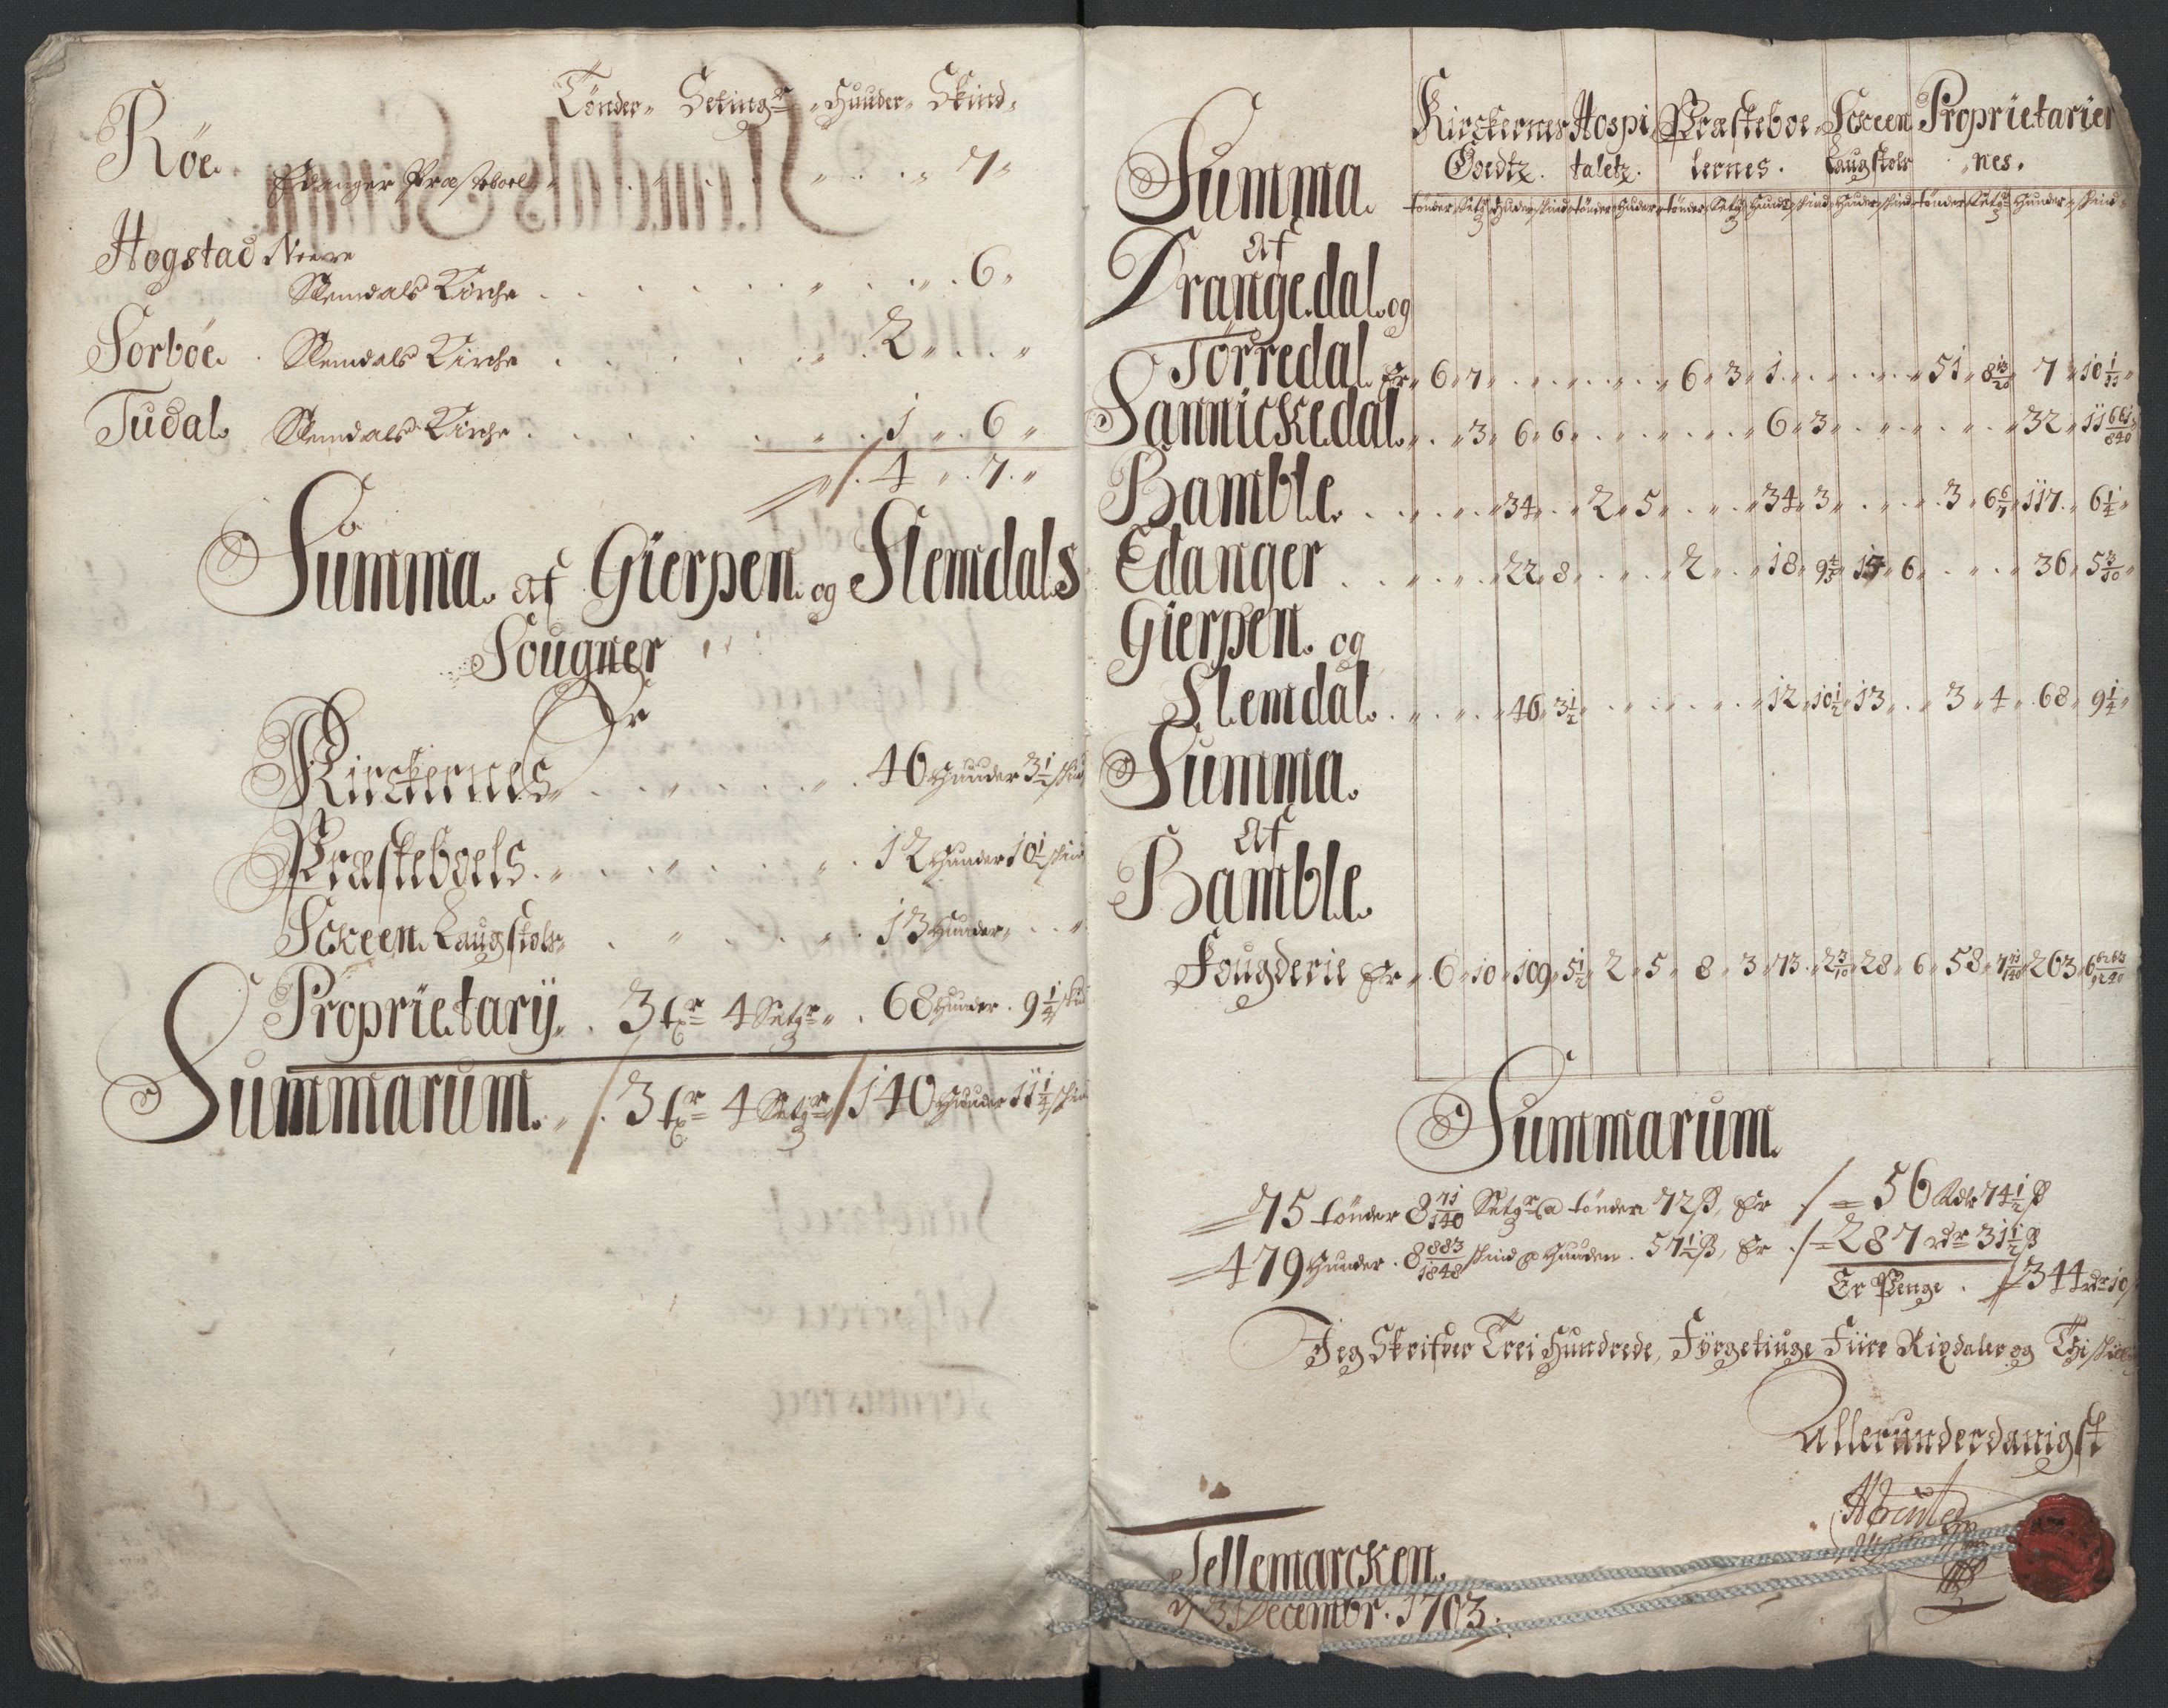 Tönder„ Setingr „ Huuder„ Skind„
Röe. Edanger Præsteboel „ . . . . „ . . „ 7„
Hogstad Neere
Slemdals Kirche . . . . . „ . „ . 6„
Sorböe. Slemdals Kirche . . . . . „ . 2 „ . . „
Tudal. Slemdals Kirche . . . . . „ . 1 „ . 6 „
„ /. 4 „ . 7. „
Summa. af Gierpen og Slemdals
Sougner
Er
Kirckernes . . „ . . „ . 46 Huuder 3½ skind
Præsteboels . . „ . . „ . 12 Huuder 10½ skind
Scheen Laugstols . „ . . „ . 13 Huuder . . „
Proprietarÿ„ . 3 tr 4 Setgr„ . 68 Huuder . 9¼ skind
Summarum. „ /. 3 tr 4 Setgr„ / 140 Huuder 11¼ skind
Kirckernes Goedtz. Hospitaletz. Præsteboelernes. Scheen Laugstols Proprietariernes.
tönder Setgr Huuder skind tönder Huder tönder Setgr Huudr skind Huuder skind tönder Setgr Huuder skind
Summa
Af
Drangedal og
Törredal Er„ 6„ 7„ . . . . . „ 6„ 3„ 1„ . . . . „ 51„ 8 13/20 „ 7 „ 10 1/11 „
Sannickedal „ . „ 3„ 6„ 6„ . . . . „ 6„ 3„ . . . . „ 32„ 11 661/840
Bamble. . . . „ 34„ . „ 2„ 5„ . . „ 34„ 3„ . . . 3„ 6 6/7 „ 117„ 6¼„
Edanger . . . „ 22„ 8„ . . . „ 2„ . „ 18„ 9⅓„ 15„ 6„ . . . „ 36„ 5 3/10 „
Gierpen. og
Slemdal. . . . „ 46„ 3½„ . . . . „ 12„ 10½„ 13„ . „ 3„ 4„ 68„ 9¼„
Summa.
Af
Bamble.
Fougderie Er„ 6„ 10„ 109„ 5½„ 2„ 5„ 8„ 3„ 73„ 2 3/10 „ 28„ 6„ 58„ 7 71/140 „ 263„ 6 6263/9240
Summarum.
75 tönder 8 71/140 Setgr @ tönder 72ß, Er /= 56 Rdr 74½ß
479 Huuder . 8 883/1848 skind @ Huuden . 57½ß, Er ./= 287 rdr 31½ß
Er Penge . /= 344 rdr 10
Jeg Skrifver Trei Hundrede, Fÿrgetiuge Fiire Rixdaler og Thi skill
Allerunderdanigst
Tellemarcken.
d 31 Decembr. 1703.